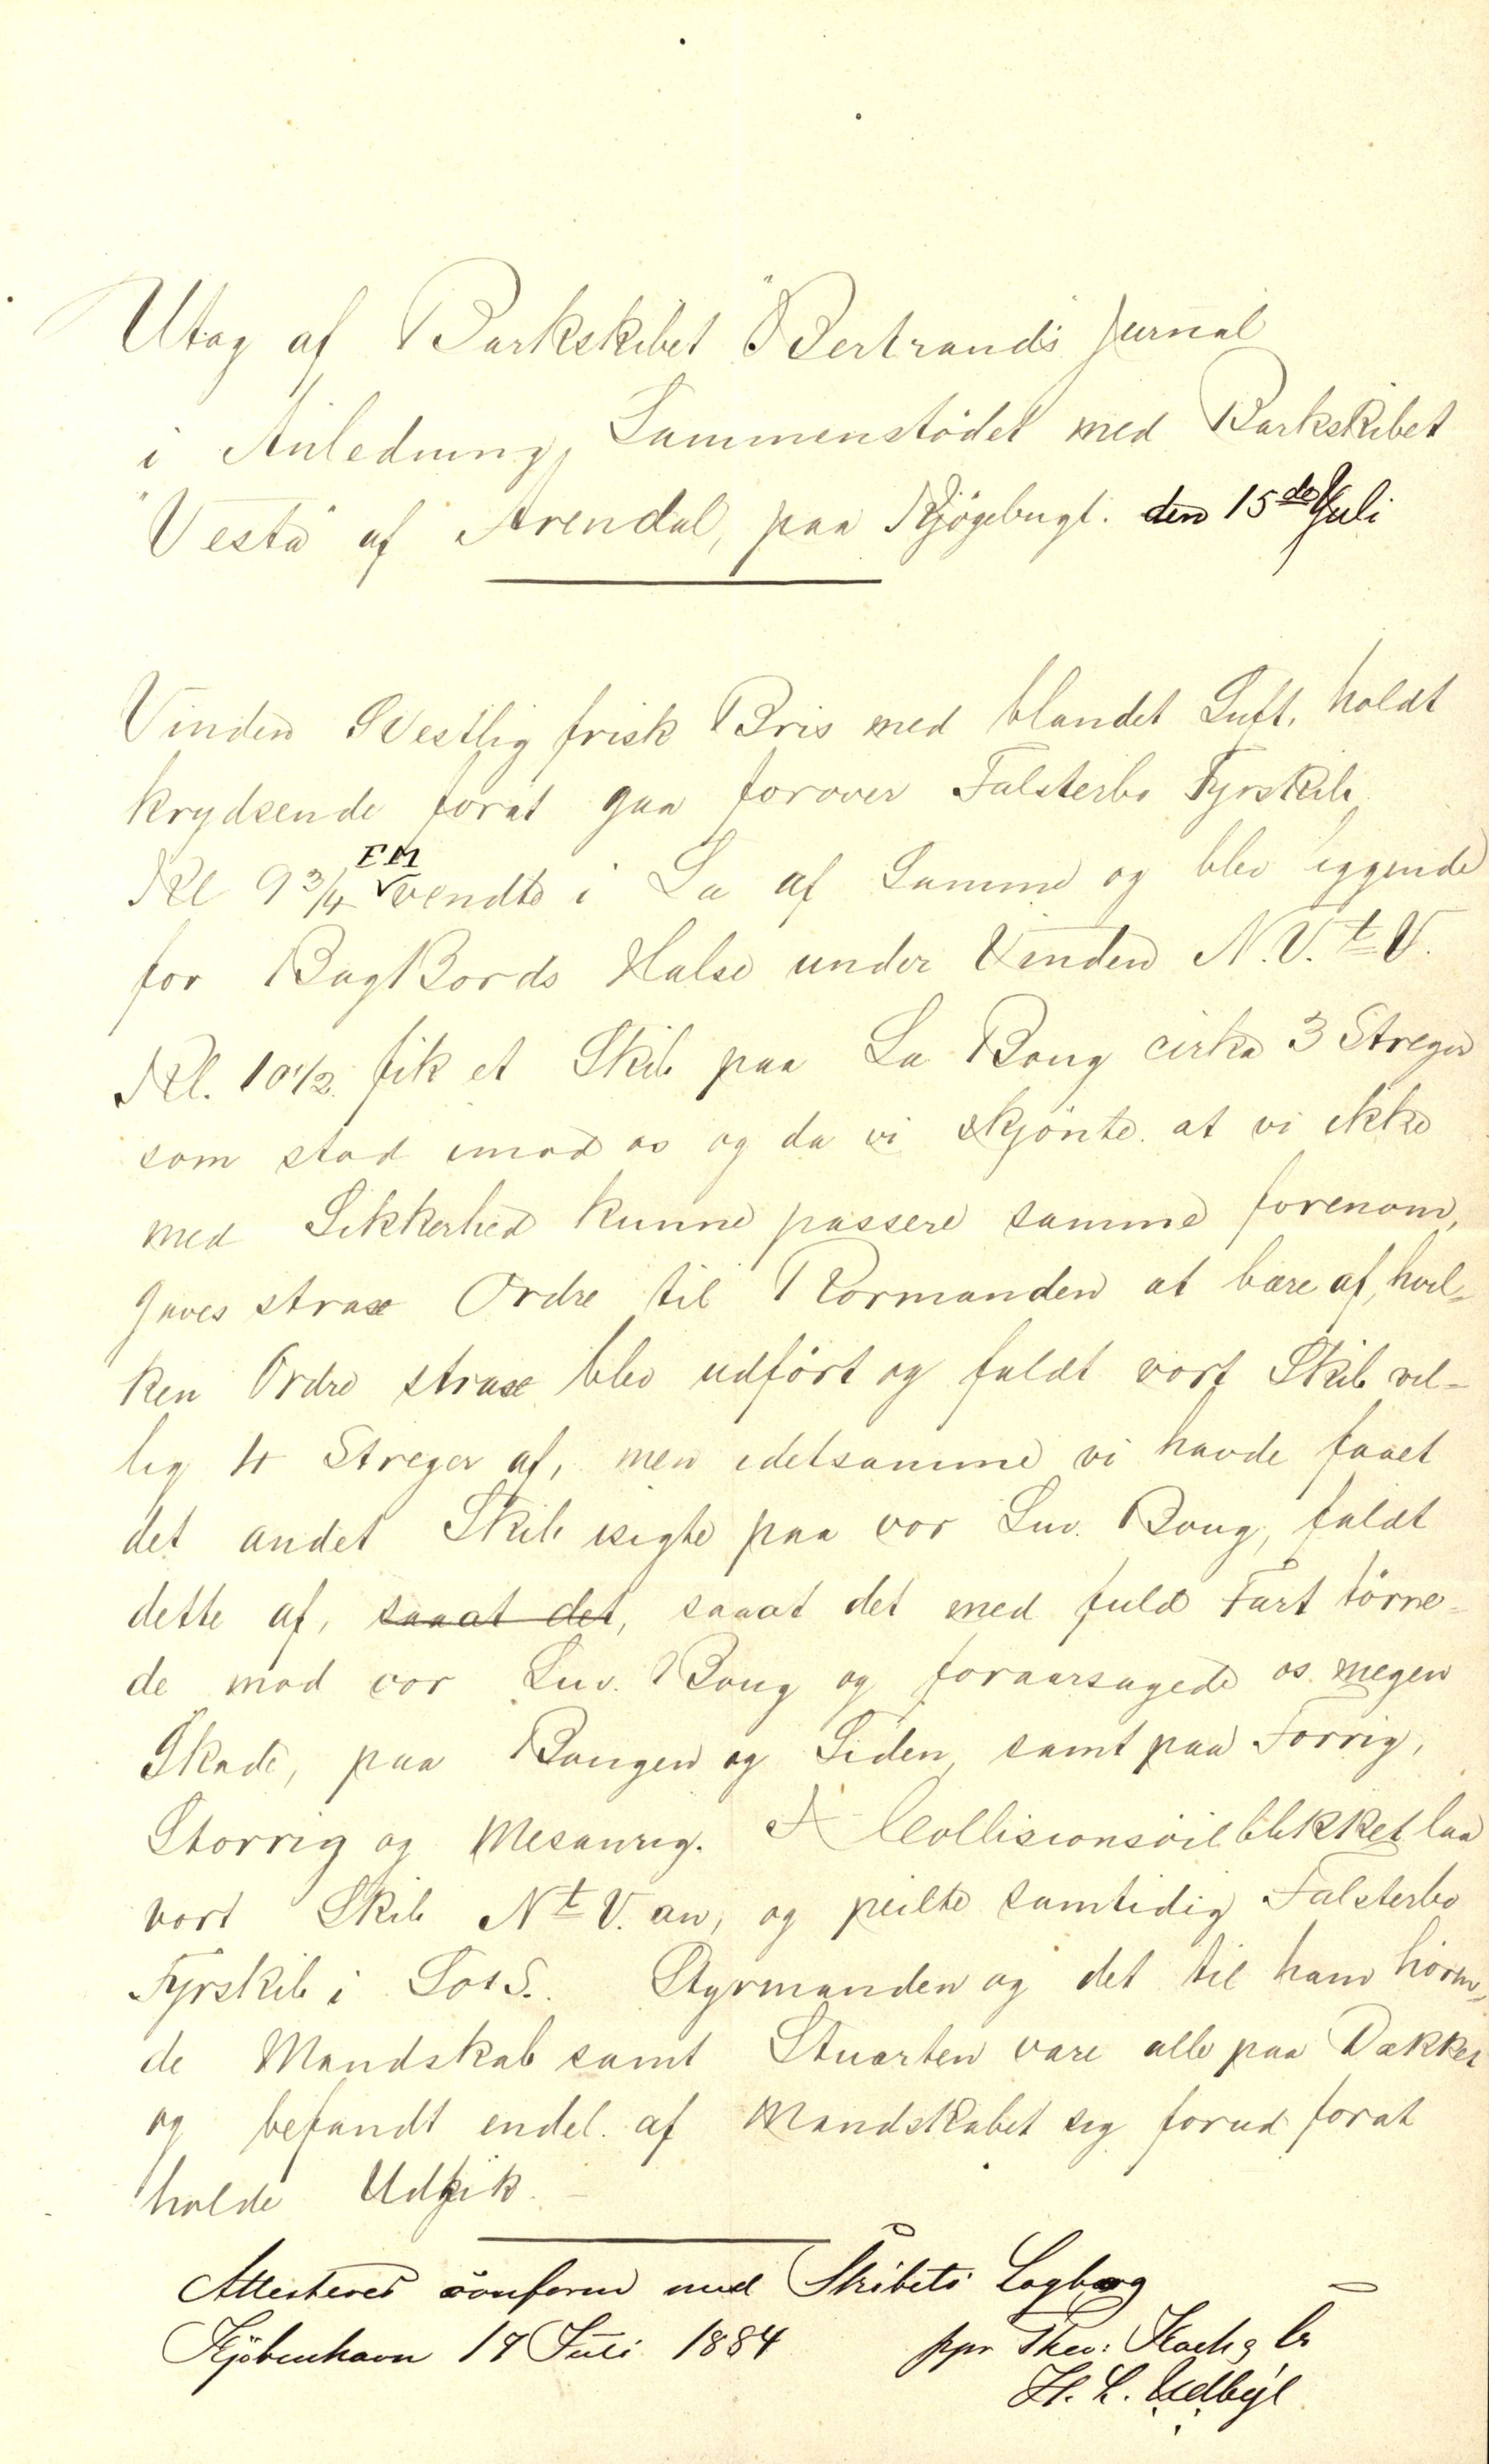 Utag af Barkskibet "Bertrand's Jurnal
i Anledning, Sammenstödet med Barkskibet
"Vesta" af Arendal, paa Kjögebugt. den 15de Juli
Vinden SVestlig frisk Bris med blandet Luft, holdt
krydsende forat gaa forover Falsterbo Fyrskib,
EM
Kl 9 3/4 vendte i La af Samme og blev liggende
for BagBords Halse under Vinden N.V. t V.
Kl. 10 1/2 fik et Skib paa La Boug cirka 3 Streger
som stod imod os og da vi skjönte at vi ikke
med Sikkerhed kunne passere samme forenom,
gaves strax Ordre til Rormanden at bære af, hvil-
ken Ordre strax blev udfört og faldt vort Skib vel-
lig 4 Streger af, men idetsamme vi havde faaet
det andet Skib isigte paa vor Luv. Boug, faldt
dette af, saaat det, saaat det med fuld Fart törne-
de mod vor Luv. Boug og foraarsagede os megen
Skade, paa Bougen og Siden, samt paa Forrig,
Storrig og Mesanrig. I Collisionsöiebl​ikket laa
vort Skib N t V. an, og peilte samtidig Falsterbo
Fyrskib i SotS. Styrmanden og det til ham hören-
de Mandskab samt Stuarten vare alle paa Dækket
og befandt endel af Mandskabet sig forud forat
holde Udkik.
Attesteres conform med Skibets Logbog
Kjöbenhavn 17 Juli 1884 ppr Theo: Koch & Co
H. L.